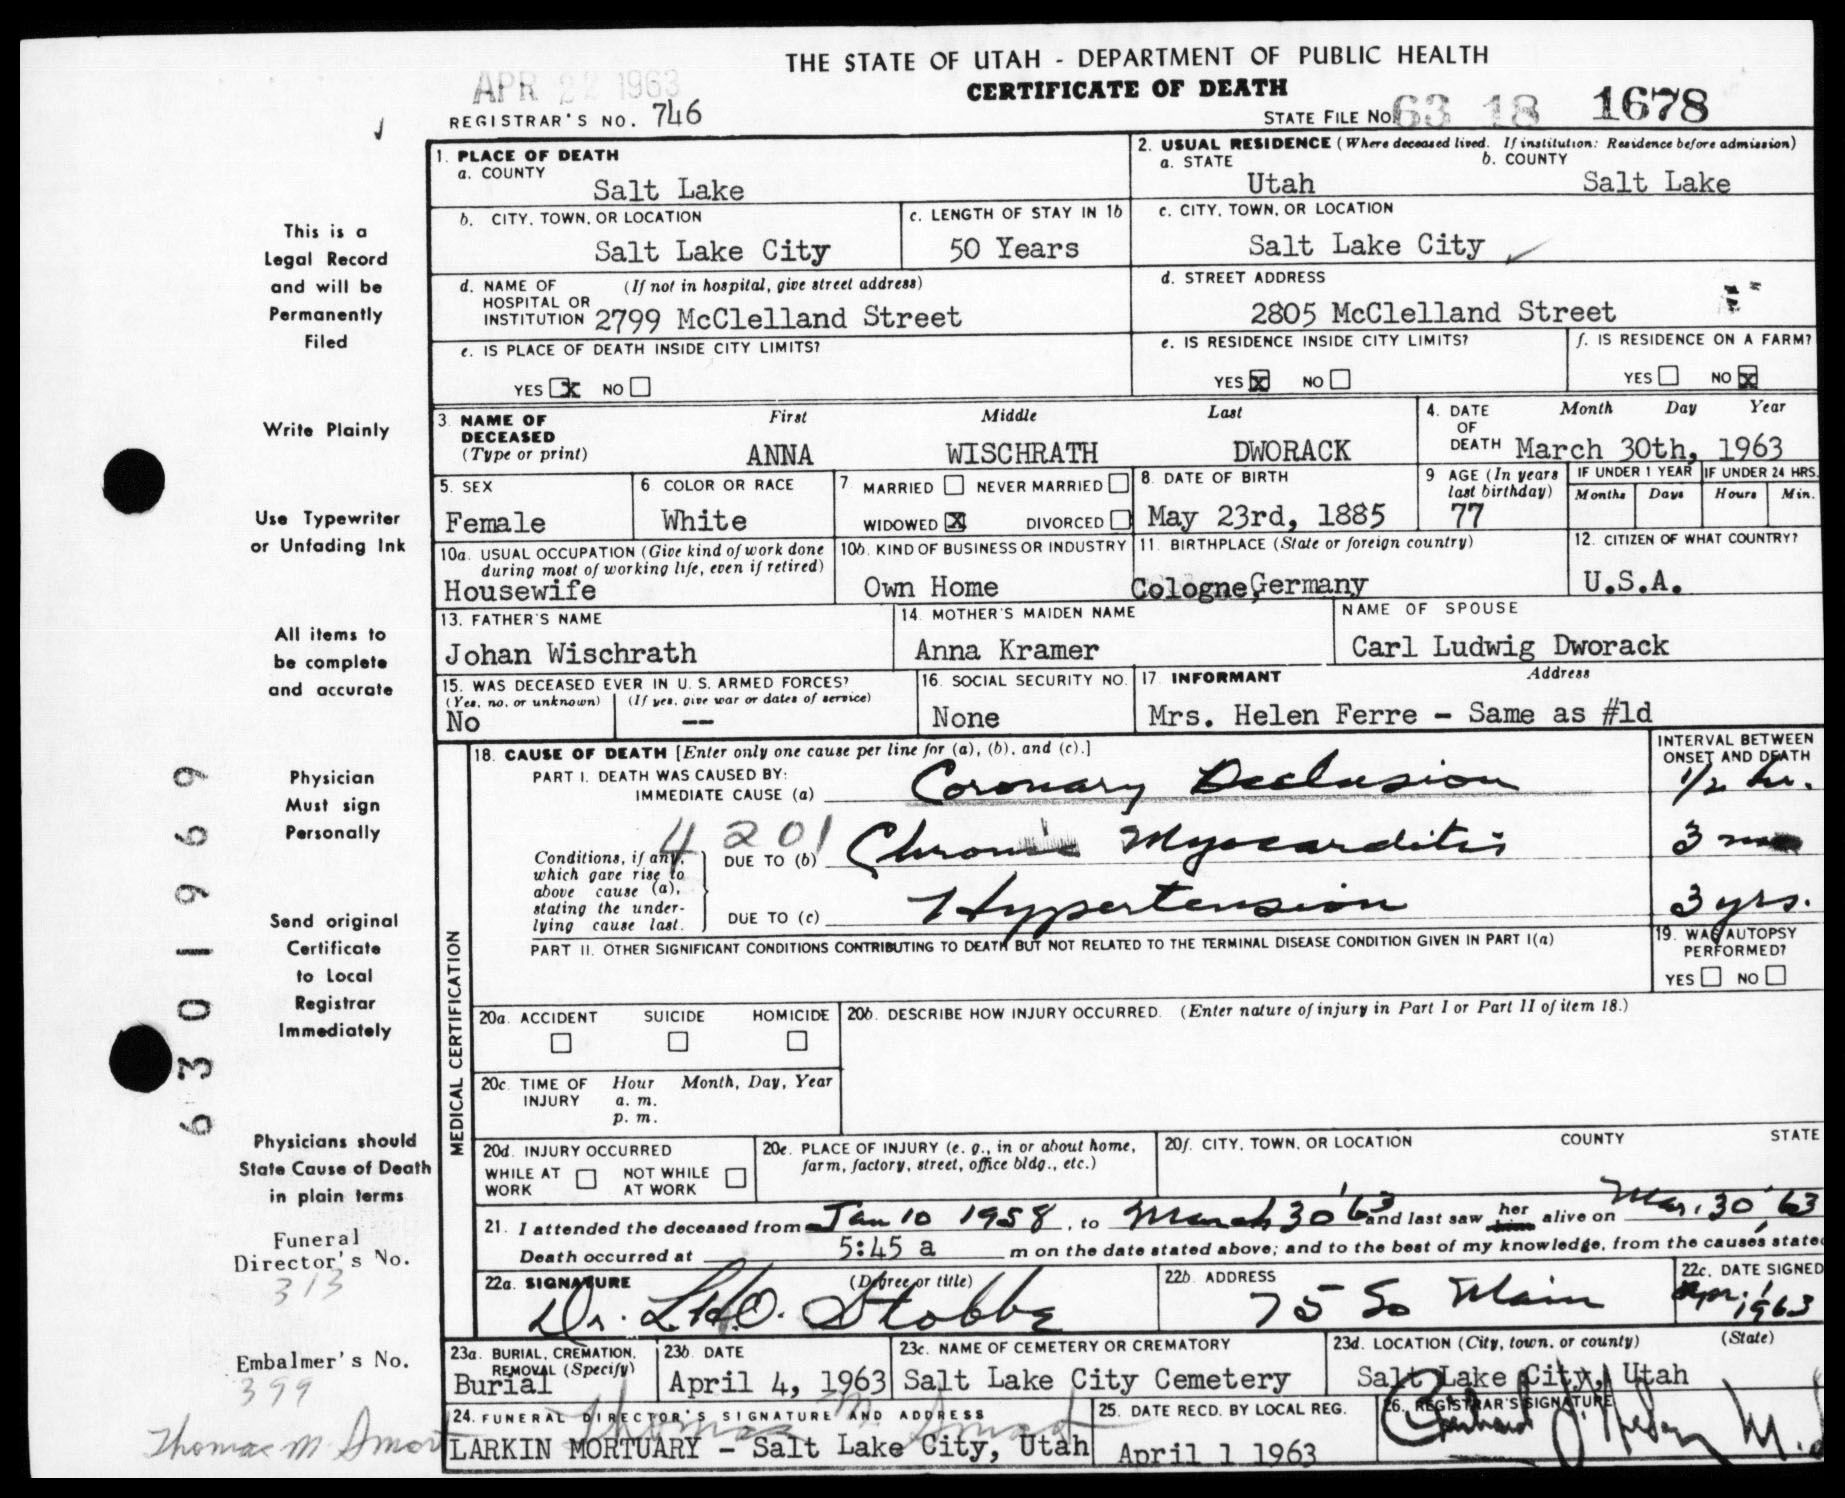 THE STATE OF UTAH - DEPARTMENT OF PUBLIC HEALTH
CERTIFICATE OF DEATH
APR 22 1963
REGISTRAR'S NO. 746
STATE FILE NO. 63 18 1678
This is a
Legal Record
and will be
Permanently
Filed
Write Plainly
Use Typewriter
or Unfading Ink
All items to
be complete
and accurate
Physician
Must sign
Personally
Send original
Certificate
to Local
Registrar
Immediately
Physicians should
State Cause of Death
in plain terms
Funeral
Director's No.
313
Embalmer's No.
399
Thomas M Smart
6301969
1. PLACE OF DEATH
a. COUNTY
Salt Lake
2. USUAL RESIDENCE (Where deceased lived. If institution: Residence before admission)
a. STATE b. COUNTY
Utah Salt Lake
b. CITY, TOWN, OR LOCATION
Salt Lake City
c. LENGTH OF STAY IN 1b
50 Years
c. CITY, TOWN, OR LOCATION
Salt Lake City
d. NAME OF (If not in hospital, give street address)
HOSPITAL OR
INSTITUTION 2799 McClelland Street
d. STREET ADDRESS
2805 McClelland Street
e. IS PLACE OF DEATH INSIDE CITY LIMITS?
YES X NO
e. IS RESIDENCE INSIDE CITY LIMITS?
YES X NO
f. IS RESIDENCE ON A FARM?
YES NO X
3. NAME OF DECEASED (Type or print)
First Middle Last
ANNA WISCHRATH DWORACK
4. DATE OF DEATH
Month Day Year
March 30th, 1963
5. SEX
Female
6 COLOR OR RACE
White
7. MARRIED NEVER MARRIED
WIDOWED X DIVORCED
8. DATE OF BIRTH
May 23rd, 1885
9 AGE (In years last birthday)
77
IF UNDER 1 YEAR
Months Days
IF UNDER 24 HRS.
Hours Min.
10a. USUAL OCCUPATION (Give kind of work done
during most of working life, even if retired)
Housewife
10b. KIND OF BUSINESS OR INDUSTRY
Own Home
11. BIRTHPLACE (State or foreign country)
Cologne, Germany
12. CITIZEN OF WHAT COUNTRY?
U.S.A.
13. FATHER'S NAME
Johan Wischrath
14. MOTHER'S MAIDEN NAME
Anna Kramer
NAME OF SPOUSE
Carl Ludwig Dworack
15. WAS DECEASED EVER IN U. S. ARMED FORCES?
(Yes, no, or unknown) (If yes, give war or dates of service)
No --
16. SOCIAL SECURITY NO.
None
17. INFORMANT Address
Mrs. Helen Ferre - Same as #1d
MEDICAL CERTIFICATION
18. CAUSE OF DEATH [Enter only one cause per line for (a), (b), and (c).]
PART I. DEATH WAS CAUSED BY:
IMMEDIATE CAUSE (a) Coronary Occlusion
INTERVAL BETWEEN
ONSET AND DEATH
1/2 hr.
4201
Conditions, if any,
which gave rise to
above cause (a),
stating the under-
lying cause last.
DUE TO (b) Chronic Myocarditis
3
DUE TO (c) Hypertension
3 yrs.
PART II. OTHER SIGNIFICANT CONDITIONS CONTRIBUTING TO DEATH BUT NOT RELATED TO THE TERMINAL DISEASE CONDITION GIVEN IN PART I(a)
19. WAS AUTOPSY
PERFORMED?
YES NO
20a. ACCIDENT SUICIDE HOMICIDE
20b. DESCRIBE HOW INJURY OCCURRED. (Enter nature of injury in Part I or Part II of item 18.)
20c. TIME OF INJURY
Hour Month, Day, Year
a. m.
p. m.
20d. INJURY OCCURRED
WHILE AT WORK NOT WHILE AT WORK
20e. PLACE OF INJURY (e. g., in or about home,
farm, factory, street, office bldg., etc.)
20f. CITY, TOWN, OR LOCATION COUNTY STATE
21. I attended the deceased from Jan 10 1958, to March 30 '63 and last saw her him alive on Mar. 30 '63
Death occurred at 5:45 a m on the date stated above; and to the best of my knowledge, from the causes state
22a. SIGNATURE (Degree or title)
Dr. Stobbe
22b. ADDRESS
75 So Main
22c. DATE SIGNED
Apr. 1 1963
23a. BURIAL, CREMATION,
REMOVAL (Specify)
Burial
23b. DATE
April 4, 1963
23c. NAME OF CEMETERY OR CREMATORY
Salt Lake City Cemetery
23d. LOCATION (City, town, or county) (State)
Salt Lake City, Utah
24. FUNERAL DIRECTOR'S SIGNATURE AND ADDRESS
Thomas M. Smart
LARKIN MORTUARY - Salt Lake City, Utah
25. DATE RECD. BY LOCAL REG.
April 1 1963
26. REGISTRAR'S SIGNATURE